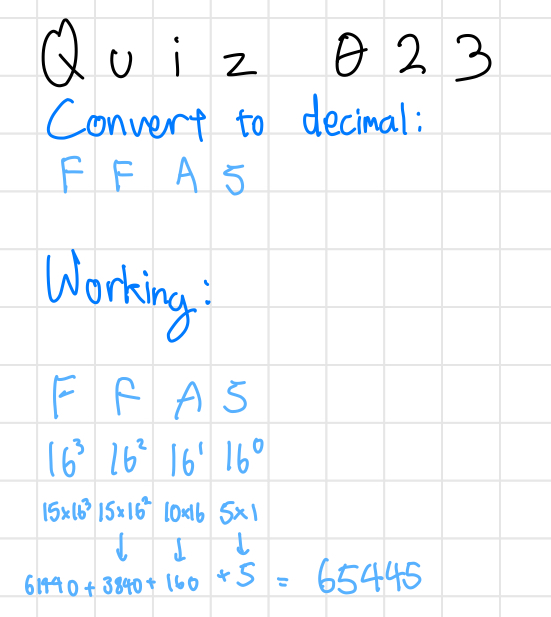 Quiz 023
Convert to decimal:
F F A 5
Working:
F F A 5
16³ 16² 16¹ 16⁰
15×16³ 15×16² 10×16 5×1
↓ ↓ ↓
61440 + 3840 + 160 + 5 = 65445